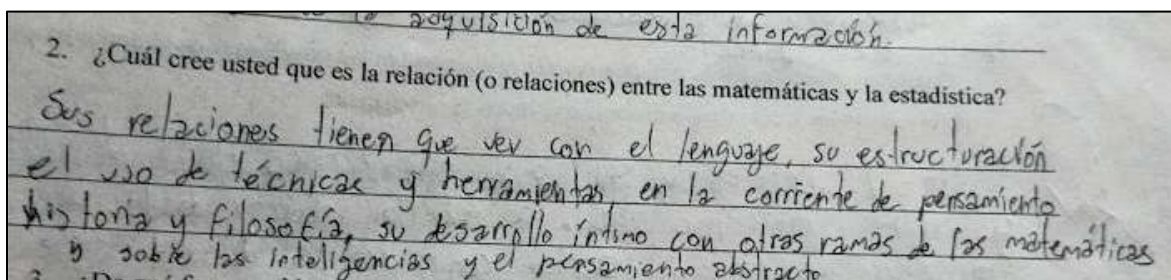 adquisición de esta información.
2. ¿Cuál cree usted que es la relación (o relaciones) entre las matemáticas y la estadística?
Sus relaciones tienen que ver con el lenguaje, su estructuración
el uso de técnicas y herramientas, en la corriente de pensamiento
historia y filosofía, su desarrollo íntimo con otras ramas de las matemáticas
y sobre las inteligencias y el pensamiento abstracto